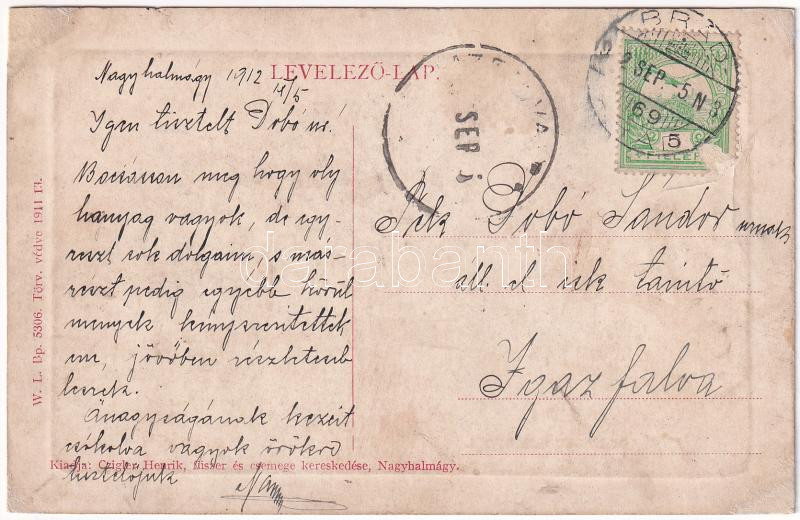 Nagyhalmágy 1912 IX/5
LEVELEZŐ-LAP.
Igen tisztelt Dobó úr!
Bocsásson meg hogy oly
hanyag vagyok, de egy-
részt sok dolgaim, s más-
részt pedig egyebb körül
mények kényszerítettek
em, jövőben részletesebb
leszek.
Őnagyságának kezeit
csókolva vagyok örökre
tisztelőjük
W. L. Bp. 5306. Törv. védve 1911 13.
Kiadja: Czigler Henrik, fűszer és csemege kereskedése, Nagyhalmágy.
SEP
BRÁD
SEP. 5 N 8
69
A
5
Dobó Sándor urnak
áll. el. isk. tanító
Igazfalva
darabanth